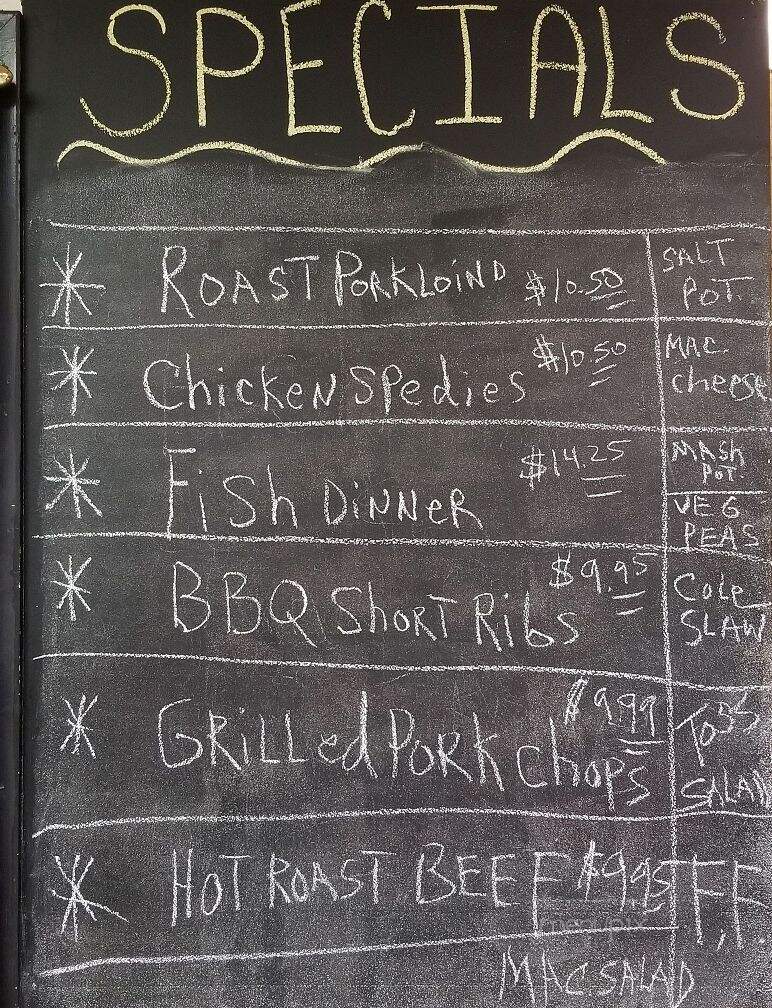 SPECIALS
ROAST PORKLOIND $10.50
SALT
POT.
Chicken SPedies $10.50
MAC
cheese
FiSh DiNNeR $14.25
MASh
POT.
VEG
PEAS
BBQ ShORT Ribs $9.95
Cole
SLAW
GRiLLed PORk chops $9.99
Toss
SALAD
HOT ROAST BEEF $9.95
F.F.
MAC SALAD